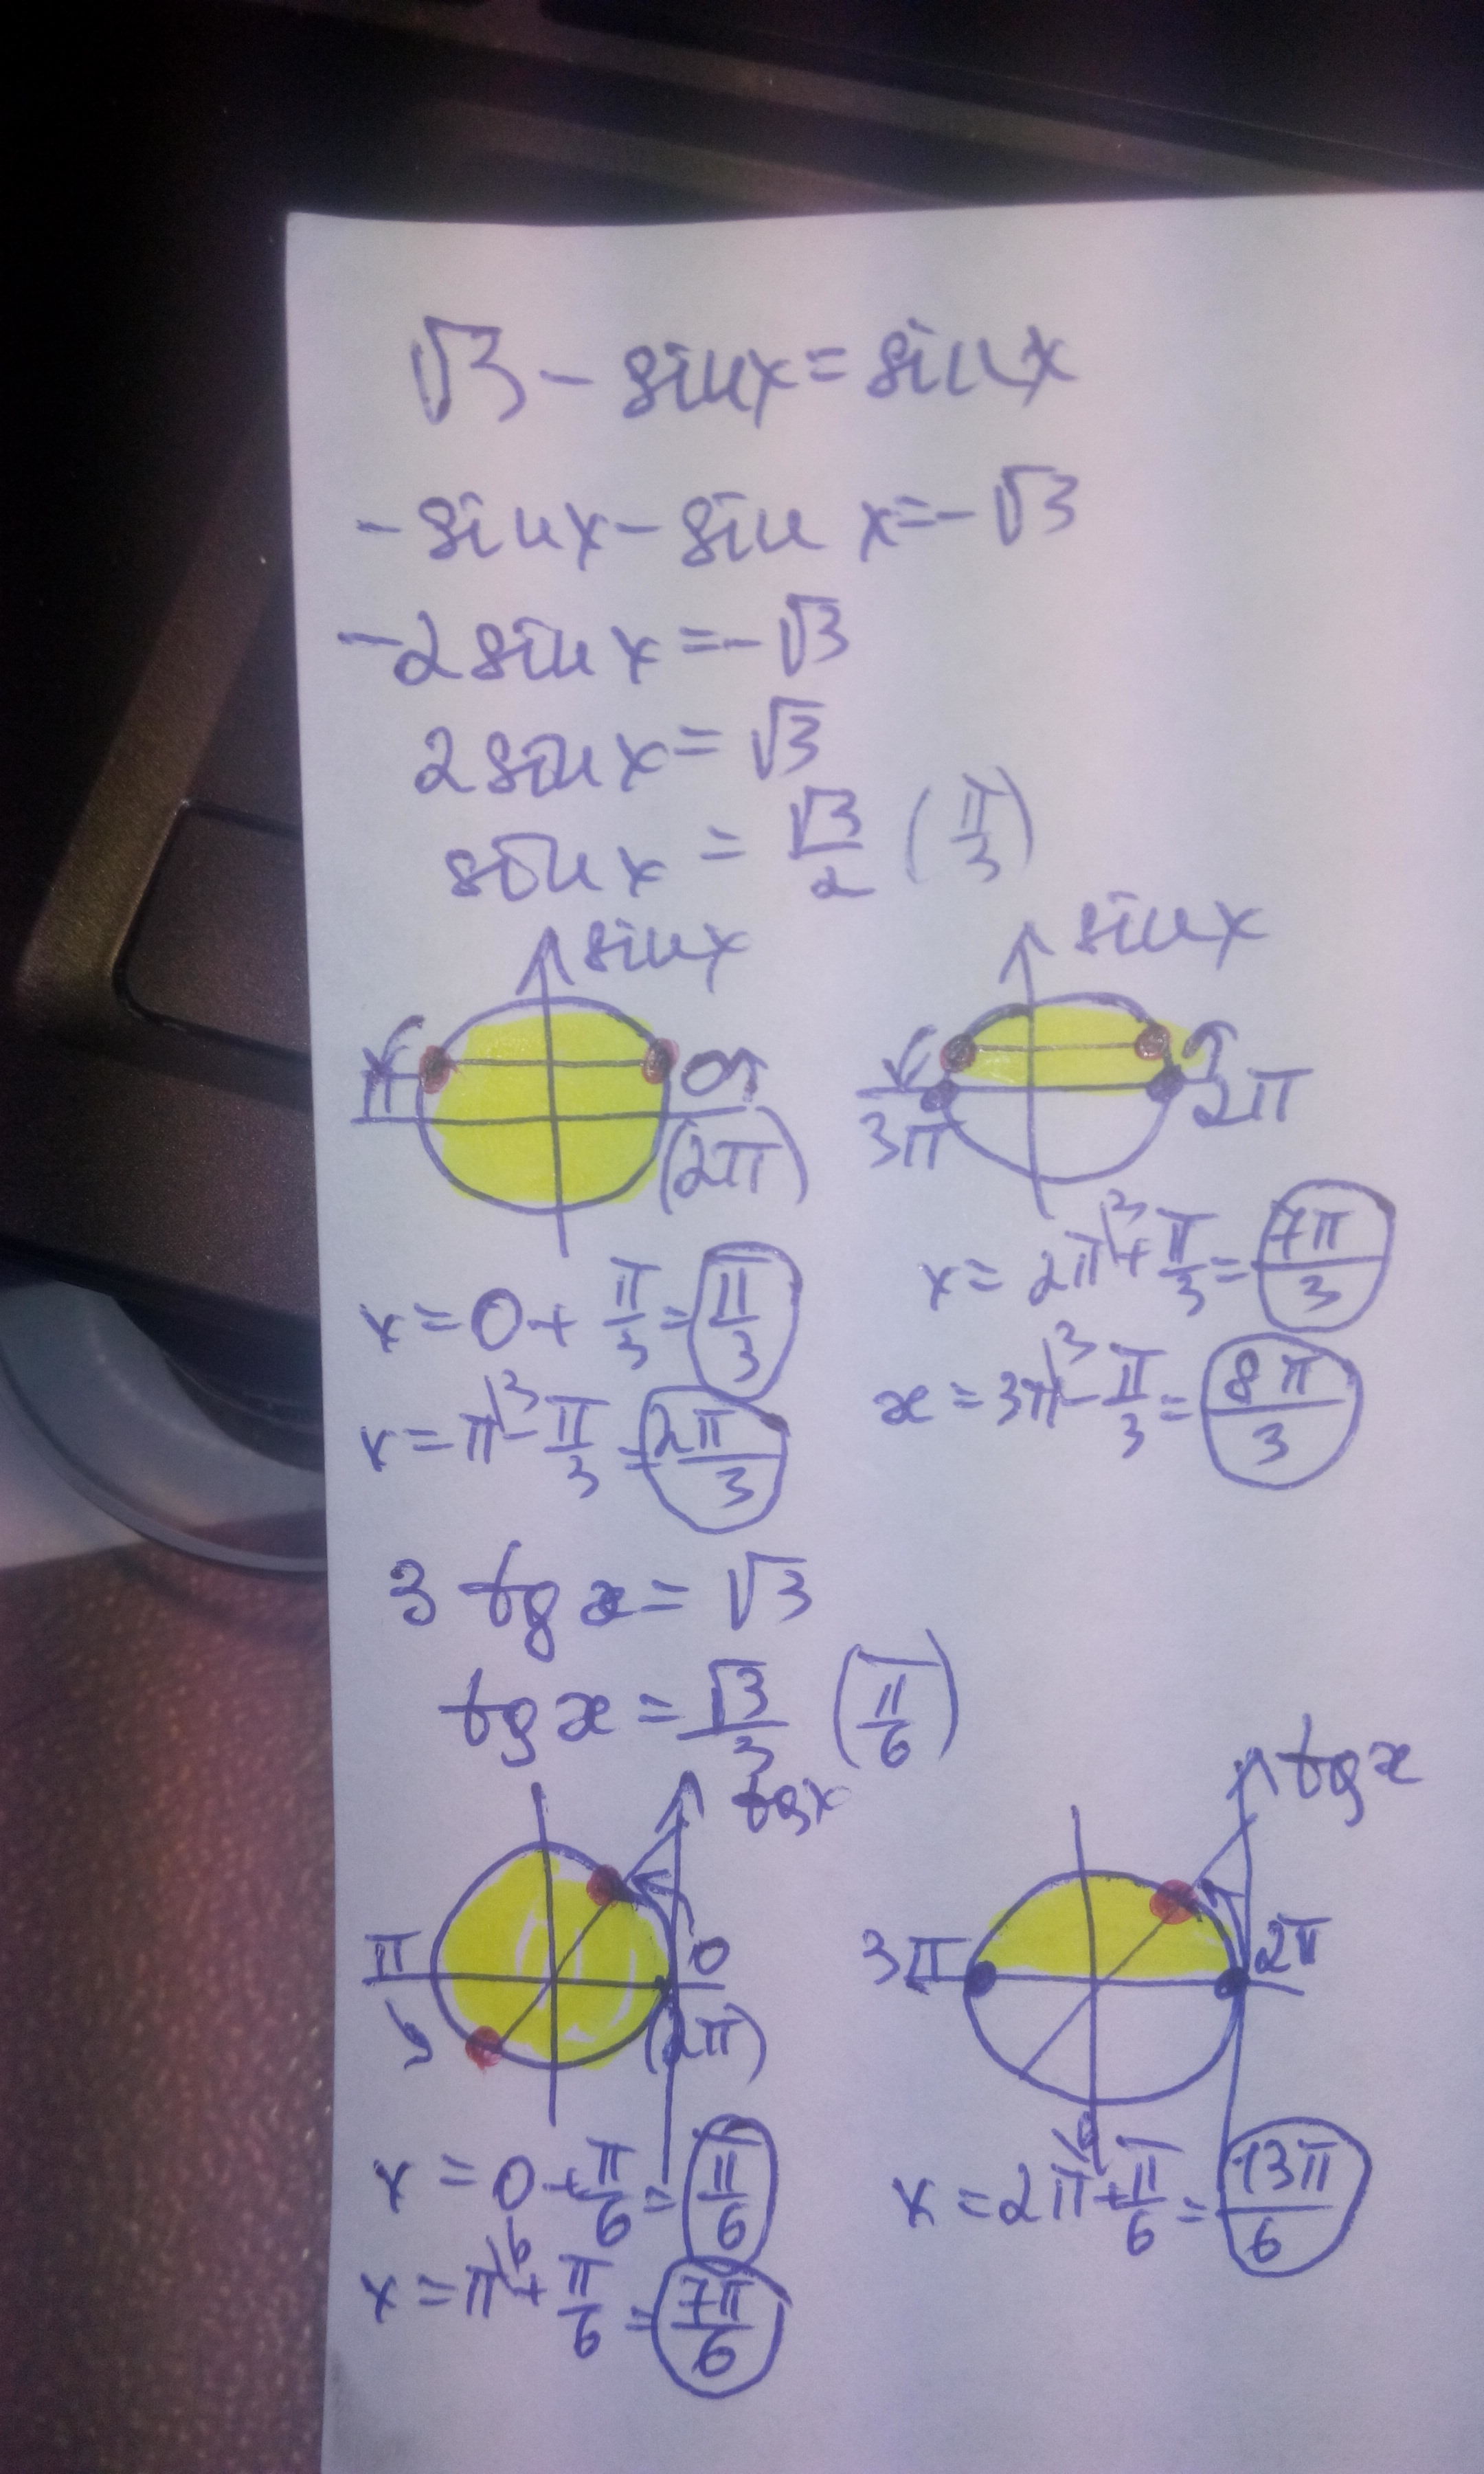 √3 - sinx = sinx
-sinx - sin x = -√3
-2 sinx = -√3
2sinx = √3
sinx = √3/2 (π/3)
sinx
π
0
(2π)
sinx
3π
2π
x = 0 + π/3 = π/3
x = π\3 - π/3 = 2π/3
x = 2π\3 + π/3 = 7π/3
x = 3π\3 - π/3 = 8π/3
3 tg x = √3
tg x = √3/3 (π/6)
tgx
π
0
(2π)
tgx
3π
2π
x = 0 + π/6 = π/6
x = π\6 + π/6 = 7π/6
x = 2π\6 + π/6 = 13π/6